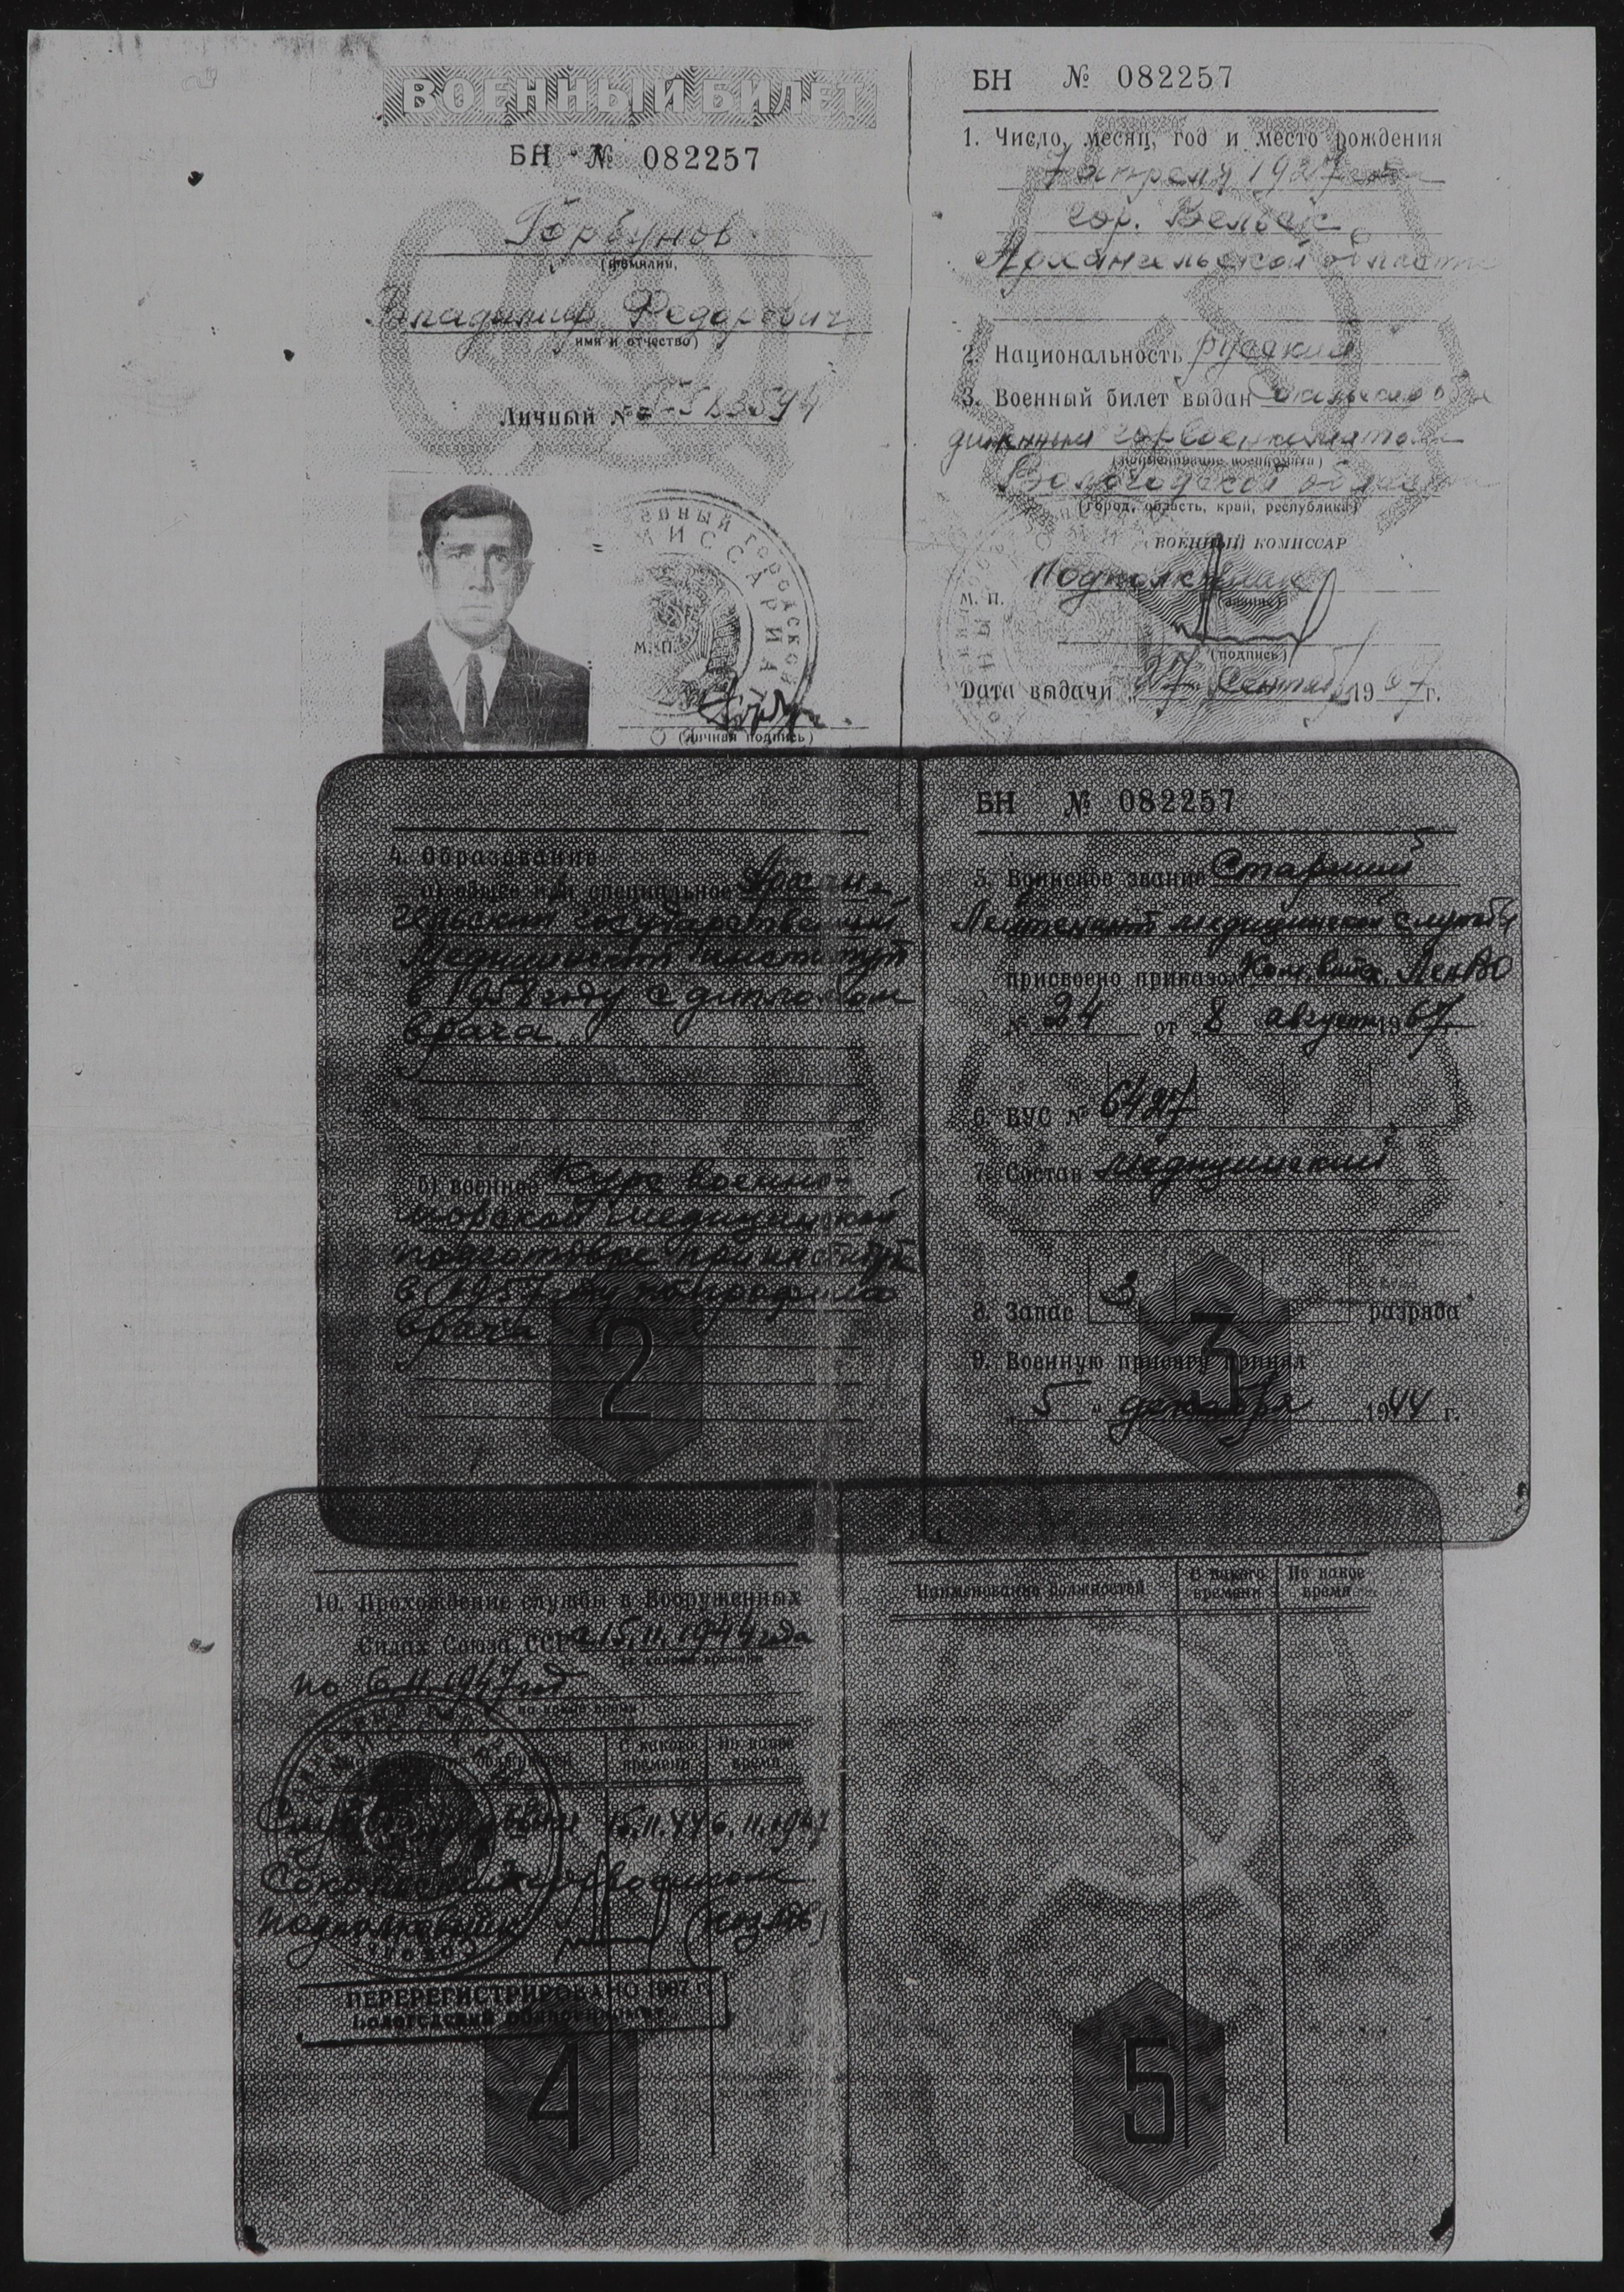 ВОЕННЫЙ БИЛЕТ
БН № 082257
Горбунов
(фамилия,
Владимир Федорович
имя и отчество)
Личный №
М. П.
(личная подпись)
БН № 082257
1. Число, месяц, год и место рождения
7 апреля 1927 года
гор. Вельск
Архангельской области
2. Национальность русский
3. Военный билет выдан Сокольским объе
диненным горвоенкоматом
(наименование военкомата)
Вологодской области
(город, область, край, республика)
ВОЕННЫЙ КОМИССАР
Подполковник
М. П.
(звание)
(подпись)
Дата выдачи „27 Сентяб 1967 г.
4. Образование
а) общее или специальное Архан-
гельский государственный
медицинский институт
в 1958 году с дипломом
врача.
б) военное Курс военно-
морской медицинской
подготовке при институте
в 1957 году
врача
2
БН № 082257
5. Воинское звание Старший
Лейтенант медицинской службы
присвоено приказом Ком. войск. ЛенВО
№ 24 от 8 августа 1967
6. ВУС № 6427
7. Состав медицинский
8. Запас 3 разряда
9. Военную присягу принял
„5" декабря 1944 г.
3
10. Прохождение службы в Вооруженных
Силах Союза ССР с 15.11.1944 года
(с какого времени
по 6.11.1947 год
по какое время)
С какого времени По какое время
15.11.44 6.11.1947
подполковник (Козлов)
ПЕРЕРЕГИСТРИРОВАНО 1967 г.
Вологодский облвоенкомат
4
Наименование должностей С какого времени По какое время
5